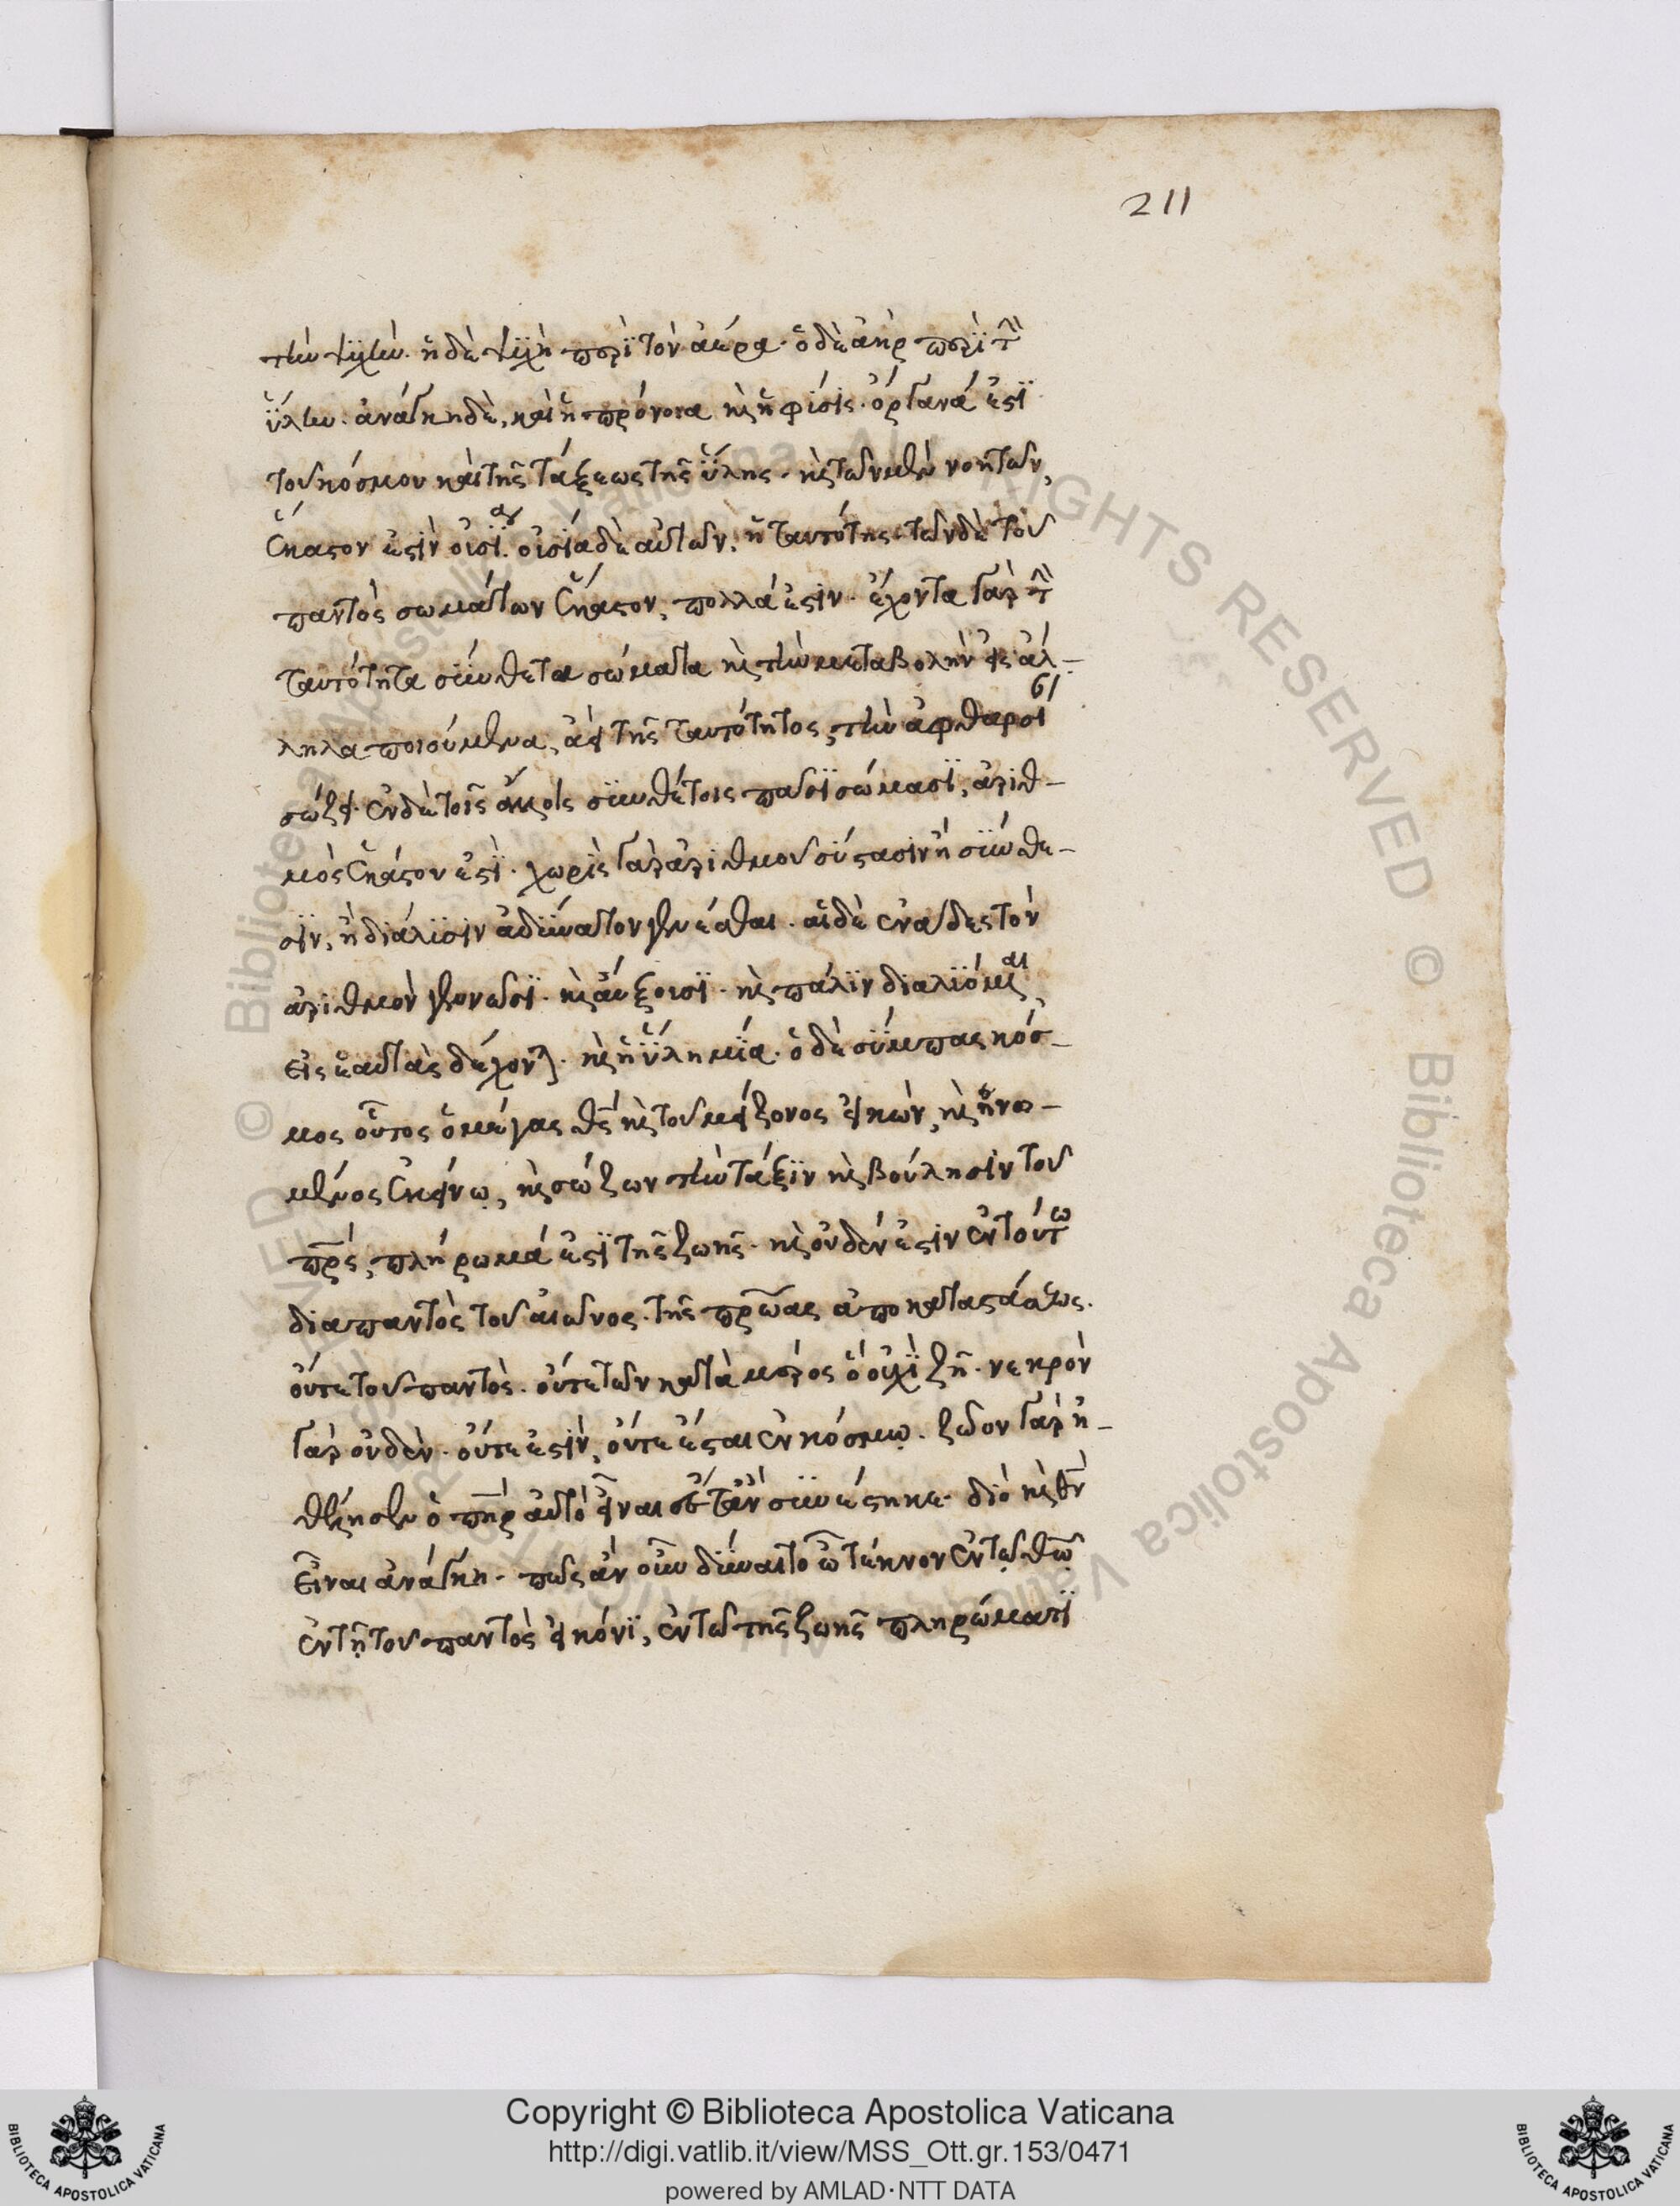 211
τὴν ψυχήν. ἡ δὲ ψυχὴ περὶ τὸν ἀέρα. ὁ δὲ ἀὴρ περὶ τὴν
ὕλην. ἀνάγκη δὲ, καὶ ἡ πρόνοια καὶ ἡ φύσις. ὄργανά ἐστι
τοῦ κόσμου καὶ τῆς τάξεως τῆς ὕλης. καὶ τῶν μὲν νοητῶν,
ἕκαστον ἐστὶν οὐσία. οὐσία δὲ αὐτῶν, ἡ ταυτότης. τῶν δὲ τοῦ
παντὸς σωμάτων ἕκαστον, πολλά ἐστιν. ἔχοντα γὰρ τὴν
ταυτότητα σύνθετα σώματα καὶ τὴν μεταβολὴν εἰς ἄλ-
ληλα ποιούμενα, ἀεὶ τῆς ταυτότητος, τὴν ἀφθαρσίαν
σώζει. ἐν δὲ τοῖς ἄλλοις συνθέτοις πᾶσι σώμασι, ἀριθ-
μὸς ἑκάστου ἐστὶ. χωρὶς γὰρ ἀριθμοῦ σύστασιν ἢ σύνθε-
σιν, ἢ διάλυσιν ἀδύνατον γενέσθαι. αἱ δὲ ἑνάδες τὸν
ἀριθμὸν γεννῶσι. καὶ αὔξουσι. καὶ πάλιν διαλυόμεναι,
εἰς ἑαυτὰς δέχονται. καὶ ἡ ὕλη μία. ὁ δὲ σύμπας κόσ-
μος οὗτος ὁ μέγας θεὸς καὶ τοῦ μείζονος εἰκών, καὶ ἡνω-
μένος ἐκείνῳ, καὶ σώζων τὴν τάξιν καὶ βούλησιν τοῦ
πρς, πλήρωμά ἐστι τῆς ζωῆς. καὶ οὐδέν ἐστιν ἐν τούτω
διαπαντὸς τοῦ αἰῶνος. τῆς πρώας ἀποκαταστάσεως.
οὔτε τοῦ παντὸς. οὔτε τῶν κατὰ μέρος ὃ οὐχὶ ζῇ. νεκρὸν
γὰρ οὐδὲν. οὔτε ἐστὶν, οὔτε ἔσται ἐν κόσμῳ. ζῶον γὰρ ἠ-
θέλησεν ὁ πηρ αὐτὸ εἶναι ἔστ' ἂν συνέστηκε. διὸ καὶ θν
εἶναι ἀνάγκη. πῶς ἂν οὖν δύναιτο ὦ τέκνον ἐν τῷ θῶ
ἐν τῇ τοῦ παντὸς εἰκόνι, ἐν τῶ τῆς ζωῆς πληρώματι
Copyright © Biblioteca Apostolica Vaticana
http://digi.vatlib.it/view/MSS_Ott.gr.153/0471
powered by AMLAD·NTT DATA